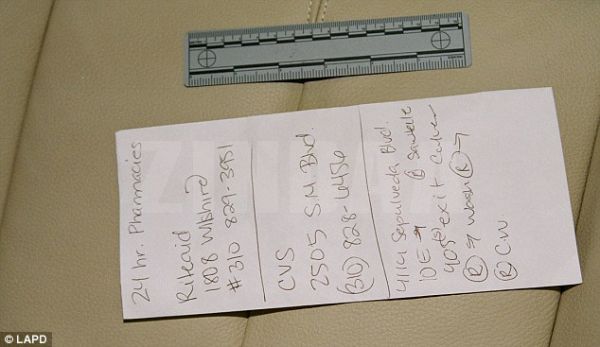 24 hr. Pharmacies
Riteaid
1808 Wilshire
#310 829-3951
CVS
2505 S.M Blvd.
(310) 828-6456
4114 Sepulveda Blvd.
@ Sawtelle
10 E →
405 (S) exit Culver
(R) → Wash (R) →
(R) CW
© LAPD